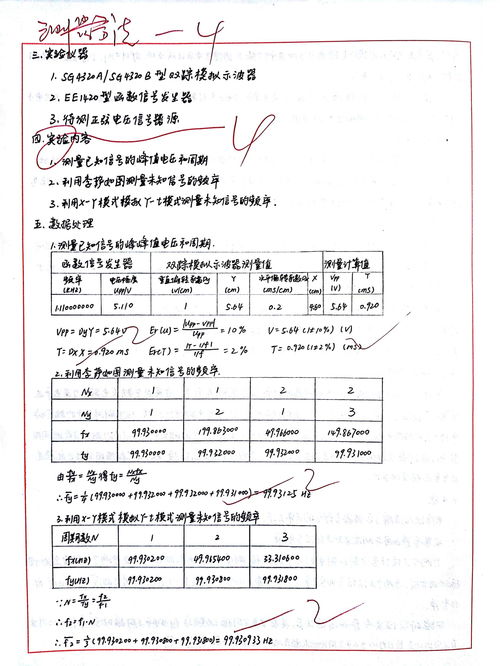 三. 实验仪器
1. SG4320A/SG4320B型双踪模拟示波器
2. EE1420型函数信号发生器
3. 待测正弦电压信号源
四. 实验内容
1. 测量已知信号的峰峰值电压和周期
2. 利用李萨如图测量未知信号的频率
3. 利用X-Y模式模拟Y-t模式测量未知信号的频率.
五. 数据处理
1. 测量已知信号的峰峰值电压和周期.
函数信号发生器 双踪模拟示波器测量值 测量计算值
频率(kHz) 电压幅度Upp/V 垂直偏转系数Dy(V/cm) Y(cm) 水平偏转系数Dx(ms/cm) X(cm) Vpp(V) T(ms)
1.110000000 5.110 1 5.64 0.2 4.60 5.64 0.920
Vpp = DyY = 5.64V Er(U) = |Upp-Vpp|/Upp = 10% V = 5.64 (1±10%) (V)
T = DxX = 0.920 ms Er(T) = = 2% T = 0.920 (1±2%) (ms)
2. 利用李萨如图测量未知信号的频率.
Nx 1 1 2 2
Ny 1 2 1 3
fx 99.930000 199.863000 49.966000 149.867000
fy 99.930000 99.932000 99.932000 99.931000
∴ fy = (99.930000 + 99.932000 + 99.932000 + 99.931000) = 99.93125 Hz
3. 利用X-Y模式模拟Y-t模式测量未知信号的频率
周期数N 1 2 3
fx(Hz) 99.930200 49.965400 33.310600
fy(Hz) 99.930200 99.930800 99.931800
∴ f2 = f1·N
∴ f2 = ⅓ (99.930200 + 99.930800 + 99.931800) = 99.930933 Hz